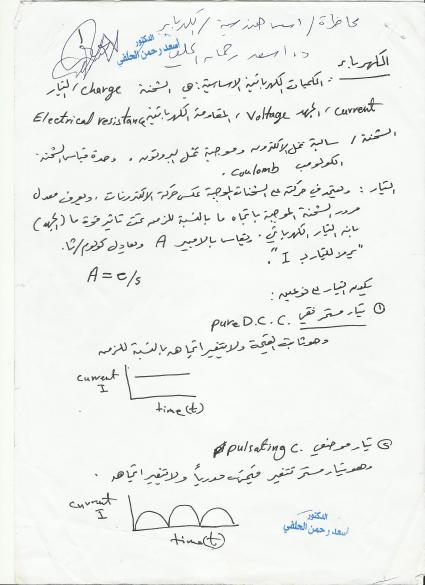 محاضرة / اسس هندسية / كهرباء
الدكتور
أسعد رحمن الحلفي
د. اسعد رحمان الحلفي
الكهرباء : الكميات الكهربائية الاساسية: هي الشحنة charge ، التيار
current ، الجهد Voltage ، المقاومة الكهربائية Electrical resistance
الشحنة / سالبة تمثل الالكترون وموجبة تمثل البروتون . وحدة قياس الشحنة
الكولومب coulomb .
التيار : ويعتمد في حركته على الشحنات الموجبة عكس حركة الالكترونات . ويعرف معدل
مرور الشحنة الموجبة باتجاه ما بالنسبة للزمن تحت تاثير قوة ما (الجهد)
بانه التيار الكهربائي . يقاس بالامبير A ويعادل كولوم/ثا.
"يرمز للتيار بـ I".
A = c/s
يكون التيار على نوعين :
① تيار مستمر نقي pure D.C.C.
وهو ثابت القيمة ولا يتغير اتجاهه بالنسبة للزمن
current
I
time(t)
② تيار موجي pulsating C.
وهو تيار مستمر تتغير قيمته دورياً ولا يتغير اتجاهه .
current
I
time(t)
الدكتور
أسعد رحمن الحلفي